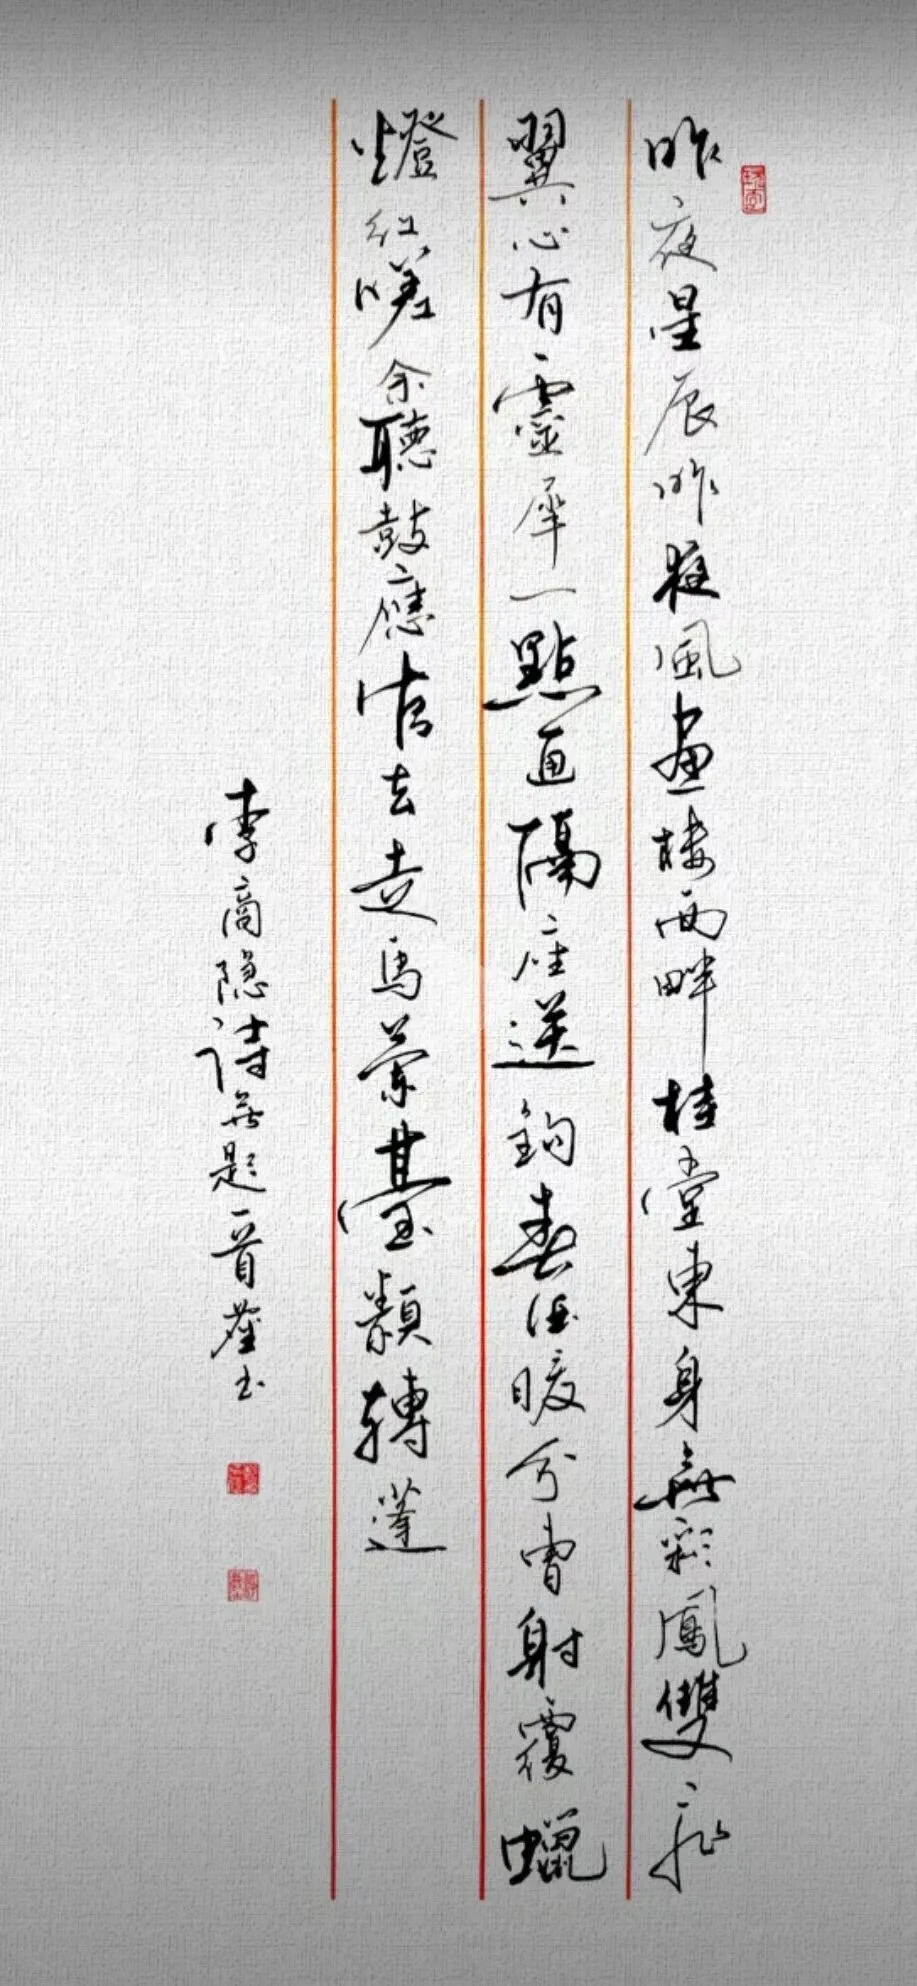 昨夜星辰昨夜風畫樓西畔桂堂東身無彩鳳雙飛
翼心有靈犀一點通隔座送鈎春酒暖分曹射覆蠟
燈紅嗟余聽鼓應官去走馬蘭臺類轉蓬
李商隐詩無題一首